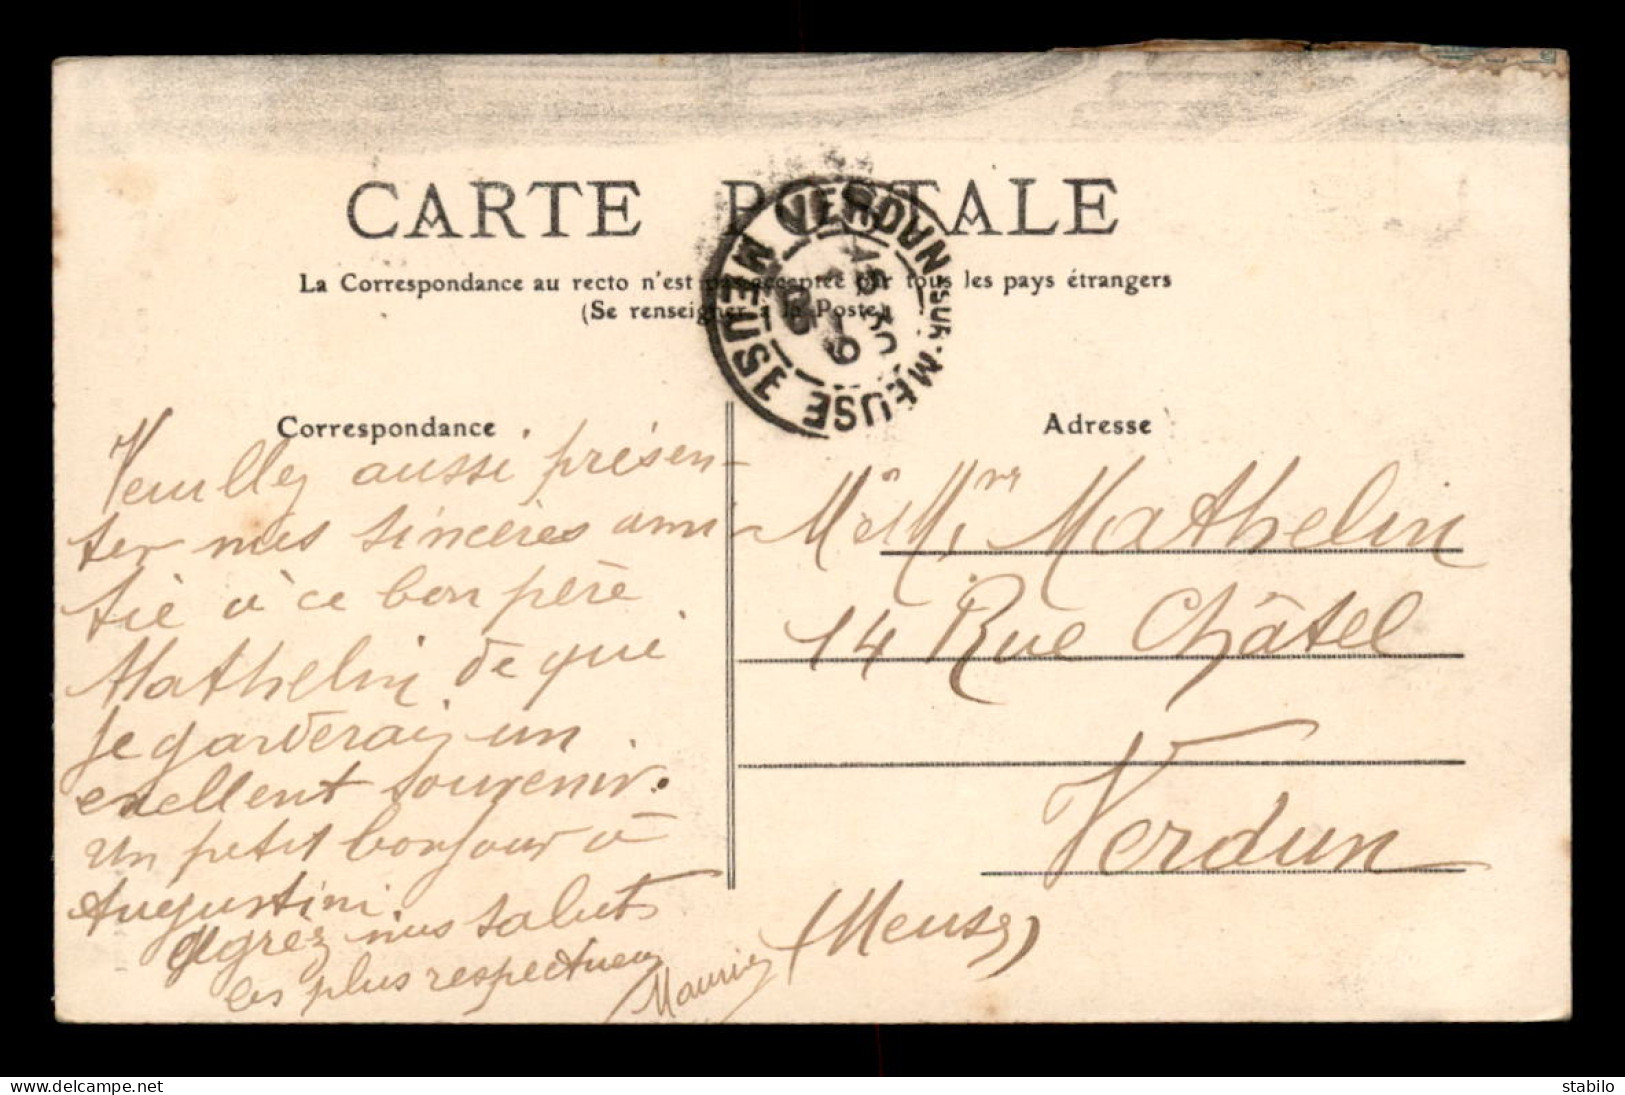 CARTE POSTALE
La Correspondance au recto n'est pas acceptée par tous les pays étrangers
(Se renseigner à la Poste)
VERDUN-SUR-MEUSE
MEUSE
Correspondance
Veuillez aussi présen-
ter mes sincères ami-
tié à ce bon père
Mathelin de qui
je garderais un
excellent souvenir.
Un petit bonjour à
Augustini.
agréz mes saluts
les plus respectueux
Maurice
Adresse
Mr & Mme Mathelin
14 Rue Châtel
Verdun
(Meuse)
www.delcampe.net
stabilo